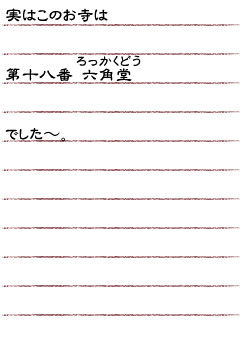 実はこのお寺は
ろっかくどう
第十八番 六角堂
でした〜。